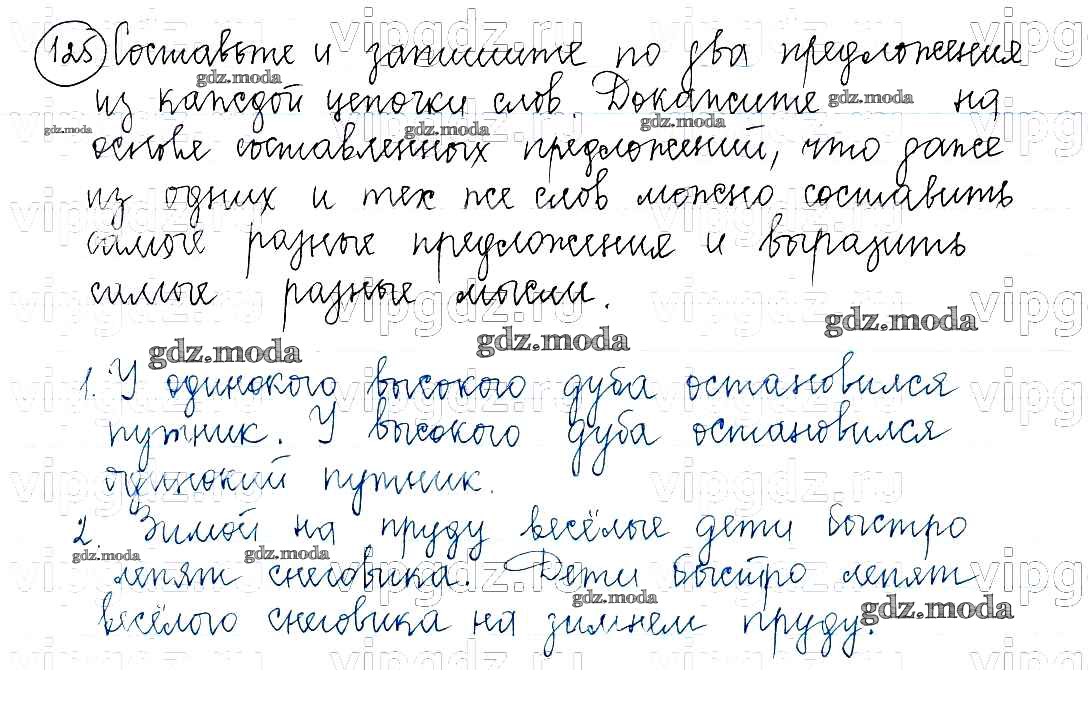 125 Составьте и запишите по два предложения
из каждой цепочки слов. Докажите на
основе составленных предложений, что даже
из одних и тех же слов можно составить
самые разные предложения и выразить
самые разные мысли.
1. У одинокого высокого дуба остановился
путник. У высокого дуба остановился
одинокий путник.
2. Зимой на пруду весёлые дети быстро
лепят снеговика. Дети быстро лепят
весёлого снеговика на зимнем пруду.
gdz.moda
vipgdz.ru